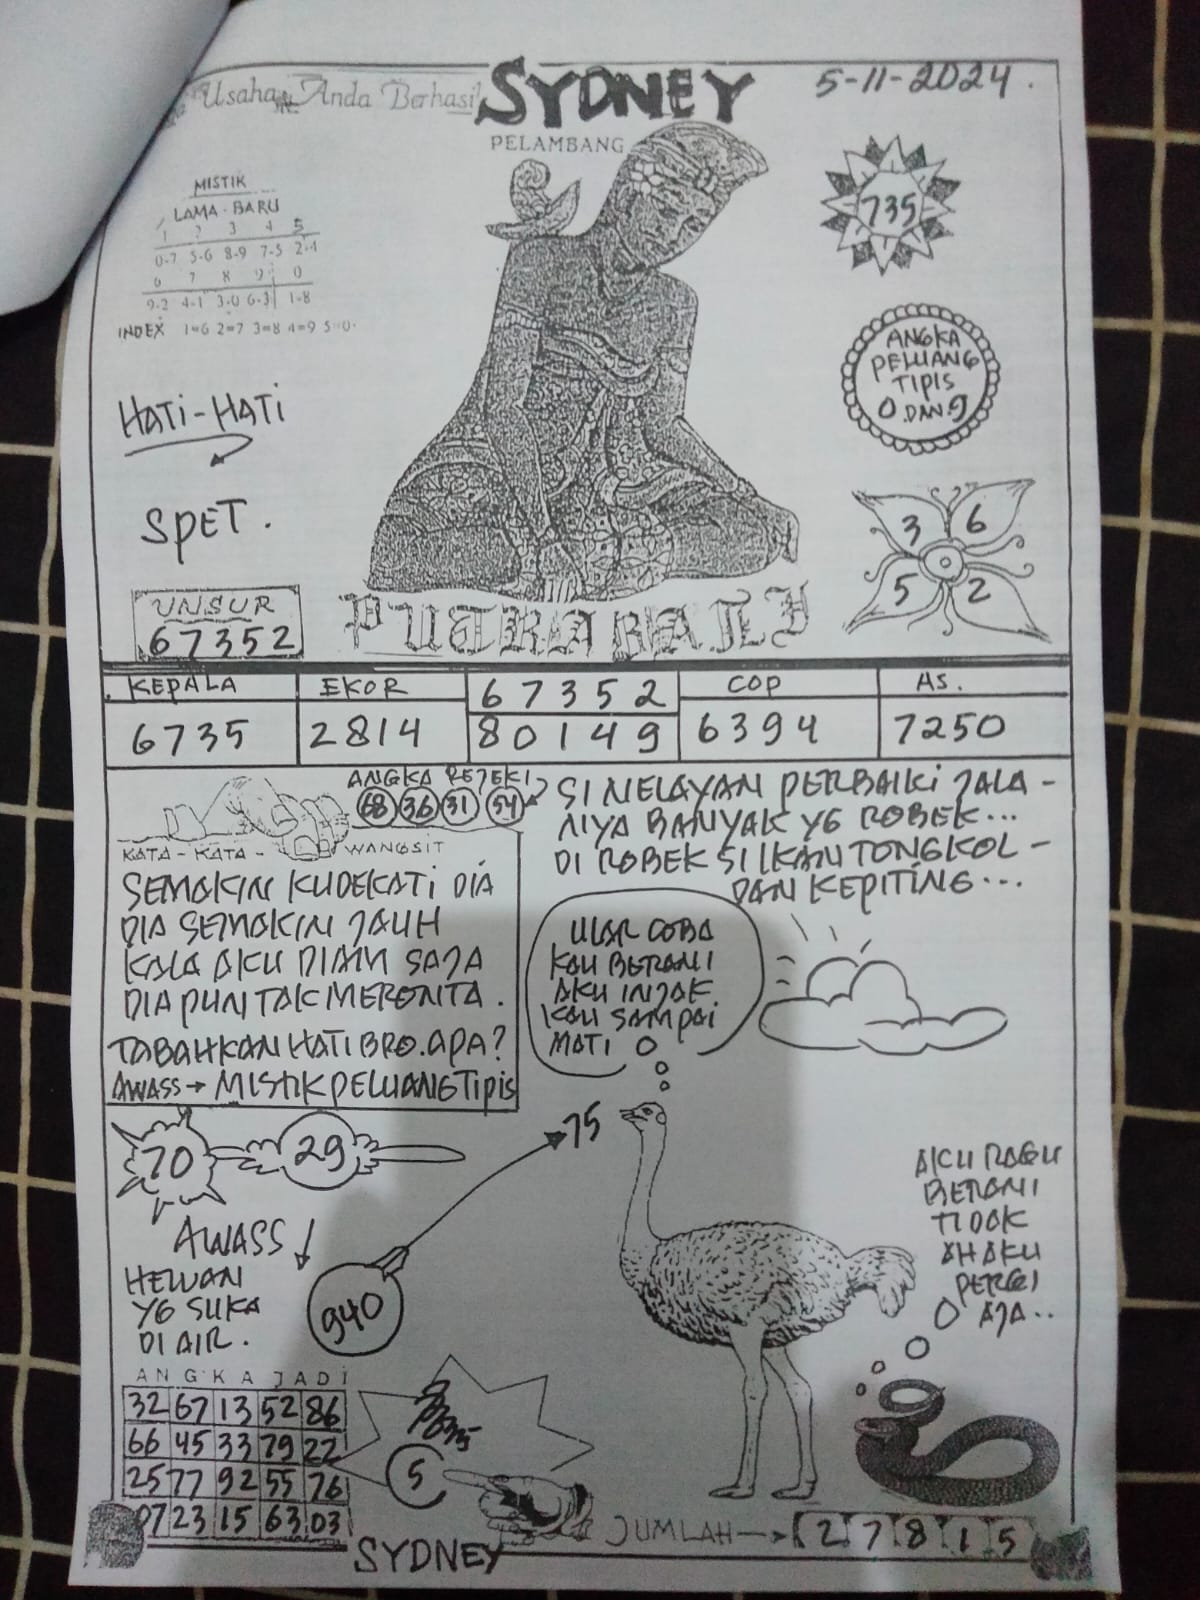 Usaha Anda Berhasil
SYDNEY
5-11-2024.
PELAMBANG
MISTIK
LAMA - BARU
1 2 3 4 5
0-7 5-6 8-9 7-5 2-4
6 7 8 9 0
9-2 4-1 3-0 6-3 1-8
INDEX 1=6 2=7 3=8 4=9 5=0
735
ANGKA
PELUANG
TIPIS
0 DAN 9
HATI-HATI
SPET.
3 6
5 2
UNSUR
67352
PUTRA BALI
KEPALA
6735
EKOR
2814
67352
80149
COP
6394
AS.
7250
ANGKA REJEKI
68 36 31 54
KATA-KATA-WANGSIT
SEMAKIN KUDEKATI DIA
DIA SEMAKIN JAUH
KALA AKU DIAM SAJA
DIA PUN TAK MERONTA.
TABAHKAN HATI BRO.APA?
AWASS→ MISTIK PELUANG TIPIS
SI NELAYAN PERBAIKI JALA-
NIYA BANYAK YG ROBEK...
DI ROBEK SI IKAN TONGKOL-
DAN KEPITING...
ULAR COBA
KAU BERANI
AKU INJAK
KAU SAMPAI
MATI
70 29
75
AWASS
HEWAN
YG SUKA
DI AIR.
940
AKU RAGU
BERANI
TIDAK
AH AKU
PERGI
AJA..
ANGKA JADI
32 67 13 52 86
66 45 33 79 22
25 77 92 55 76
07 23 15 63 03
5
JUMLAH→ 2 7 8 1 5
SYDNEY